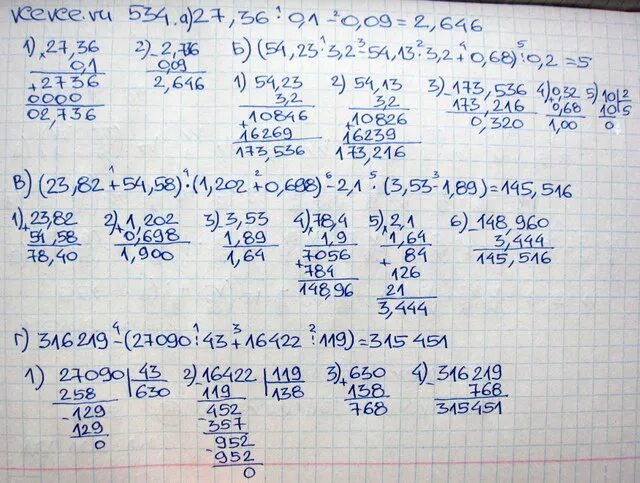 vcevce.ru 534. а) 27,36 · 0,1 - 0,09 = 2,646
1) × 27,36
0,1
+ 2736
0000
02,736
2) - 2,736
0,09
2,646
Б) (54,23 · 3,2 - 54,13 · 3,2 + 0,68) : 0,2 = 5
1) 54,23
3,2
+ 10846
16269
173,536
2) 54,13
3,2
+ 10826
16239
173,216
3) - 173,536
173,216
0,320
4) 0,32
0,68
1,00
5) 10 2
10 5
0
В) (23,82 + 54,58) · (1,202 + 0,698) - 2,1 · (3,53 - 1,89) = 145,516
1) + 23,82
54,58
78,40
2) + 1,202
0,698
1,900
3) - 3,53
1,89
1,64
4) × 78,4
1,9
+ 7056
784
148,96
5) × 2,1
1,64
+ 84
126
21
3,444
6) - 148,960
3,444
145,516
Г) 316219 - (27090 : 43 + 16422 : 119) = 315451
1) 27090 43
258 630
- 129
129
0
2) - 16422 119
119 138
452
- 357
952
- 952
0
3) + 630
138
768
4) - 316219
768
315451